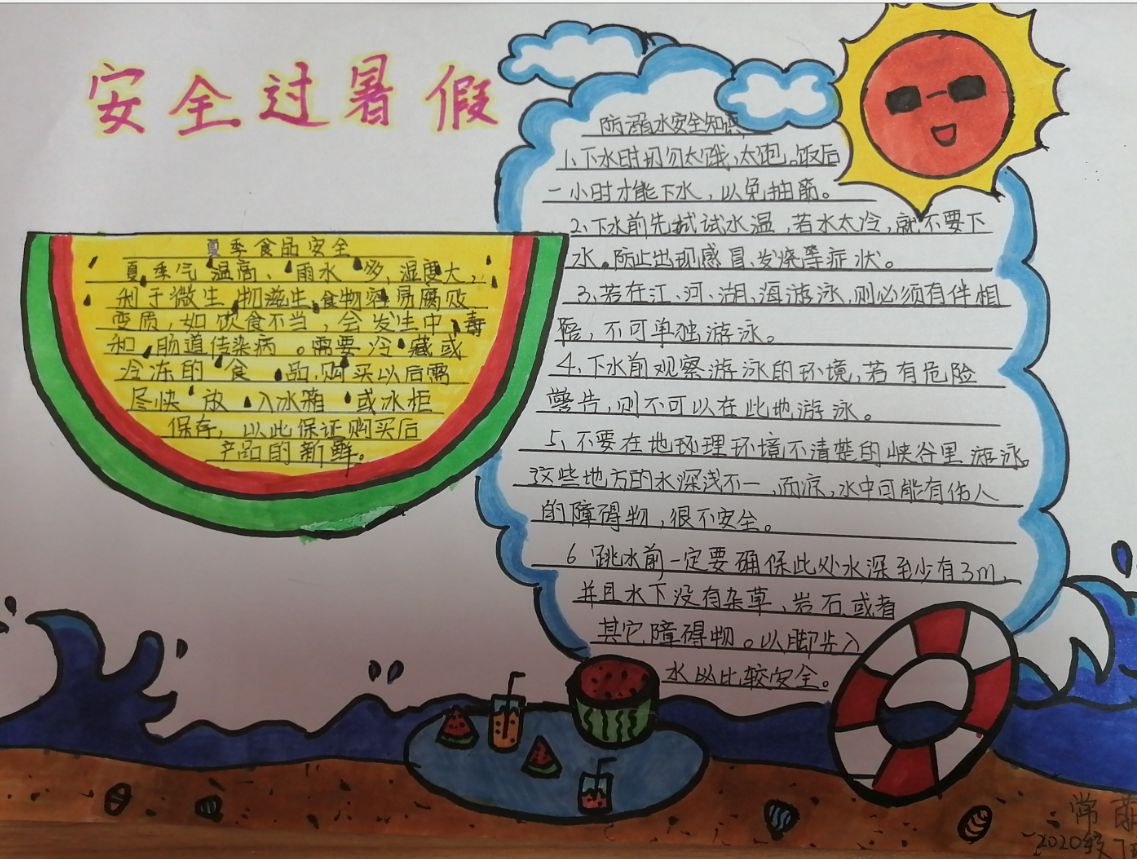 安全过暑假
夏季食品安全
夏季气温高、雨水多,湿度大,
利于微生物滋生,食物容易腐败
变质,如饮食不当,会发生中毒
和肠道传染病。需要冷藏或
冷冻的食品,购买以后需
尽快放入冰箱或冰柜
保存,以此保证购买后
产品的新鲜。
防溺水安全知识
1、下水时切勿太饿、太饱。饭后
一小时才能下水,以免抽筋。
2、下水前先拭试水温,若水太冷,就不要下
水。防止出现感冒、发烧等症状。
3、若在江、河、湖、海游泳,则必须有伴相
陪,不可单独游泳。
4、下水前观察游泳的环境,若有危险
警告,则不可以在此地游泳。
5、不要在地理环境不清楚的峡谷里游泳,
这些地方的水深浅不一,而凉,水中可能有伤人
的障碍物,很不安全。
6 跳水前一定要确保此处水深至少有3m,
并且水下没有杂草、岩石或者
其它障碍物。以脚先入
水以比较安全。
常
2020级7